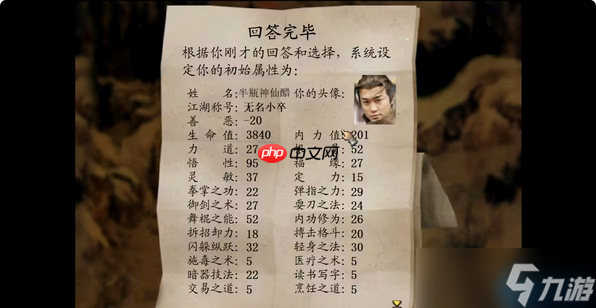 回答完毕
根据你刚才的回答和选择，系统设
定你的初始属性为：
姓 名:半瓶神仙醋 你的头像:
江湖称号:无名小卒
善 恶:-20
生命值:3840 内力值:201
力 道:27 52
悟 性:95 福 缘:27
灵 敏:37 定 力:15
拳掌之功:22 弹指之力:29
御剑之术:27 耍刀之法:24
舞棍之能:52 内功修为:26
拆招卸力:18 搏击格斗:20
闪躲纵跃:32 轻身之法:30
施毒之术:5 医疗之术:5
暗器技法:22 读书写字:5
交易之道:5 烹饪之道:5
php中文网
九游